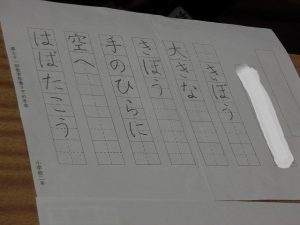 きぼう
大きな
きぼう
手のひらに
空へ
はばたこう